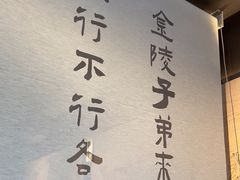 金陵子弟來
行不行各